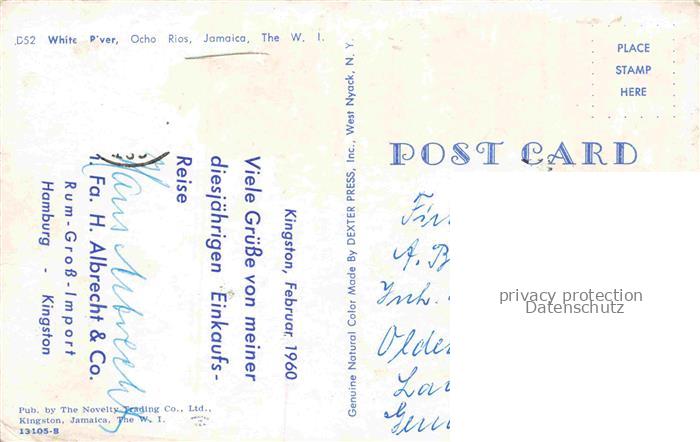 D52 White River, Ocho Rios, Jamaica, The W. I.
PLACE
STAMP
HERE
POST CARD
Kingston, Februar, 1960
Viele Grüße von meiner
diesjährigen Einkaufs-
Reise
Hans Albrecht
Fa. H. Albrecht & Co.
Rum-Groß-Import
Hamburg - Kingston
Genuine Natural Color Made By DEXTER PRESS, Inc., West Nyack, N. Y.
A. B
Inh.
Olde
privacy protection
Datenschutz
Pub. by The Novelty Trading Co., Ltd.,
Kingston, Jamaica, The W. I.
13105-B